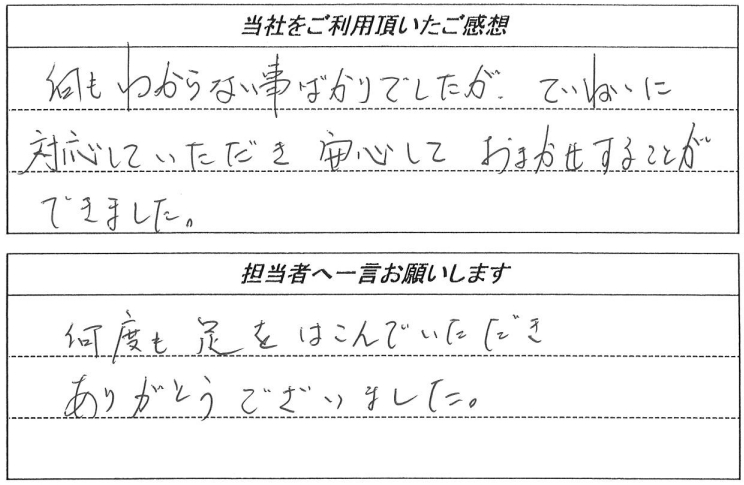 当社をご利用頂いたご感想
何もわからない事ばかりでしたが、ていねいに
対応していただき 安心して おまかせすることが
できました。
担当者へ一言お願いします
何度も 足を はこんでいただき
ありがとうございました。